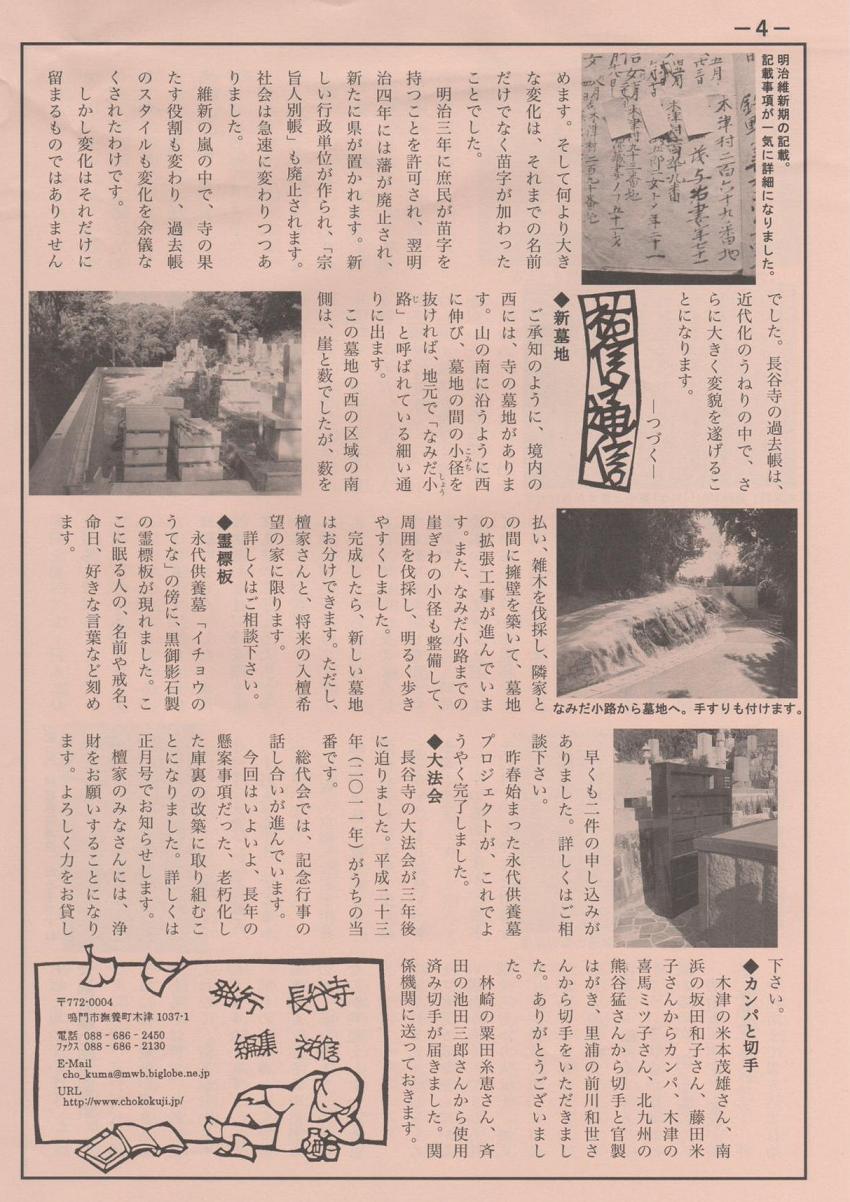 －4－
明治維新期の記載。
記載事項が一気に詳細になりました。
めます。そして何より大き
な変化は、それまでの名前
だけでなく苗字が加わった
ことでした。
　明治三年に庶民が苗字を
持つことを許可され、翌明
治四年には藩が廃止され、
新たに県が置かれます。新
しい行政単位が作られ、「宗
旨人別帳」も廃止されます。
社会は急速に変わりつつあ
りました。
　維新の嵐の中で、寺の果
たす役割も変わり、過去帳
のスタイルも変化を余儀な
くされたわけです。
　しかし変化はそれだけに
留まるものではありません
でした。長谷寺の過去帳は、
近代化のうねりの中で、さ
らに大きく変貌を遂げるこ
とになります。
―つづく―
祐信通信
◆新墓地
　ご承知のように、境内の
西には、寺の墓地がありま
す。山の南に沿うように西
に伸び、墓地の間の小径を
こみち
抜ければ、地元で「なみだ小
しょう
路」と呼ばれている細い通
じ
りに出ます。
　この墓地の西の区域の南
側は、崖と藪でしたが、藪を
払い、雑木を伐採し、隣家と
の間に擁壁を築いて、墓地
の拡張工事が進んでいま
す。また、なみだ小路までの
崖ぎわの小径も整備して、
周囲を伐採し、明るく歩き
やすくしました。
　完成したら、新しい墓地
はお分けできます。ただし、
檀家さんと、将来の入檀希
望の家に限ります。
　詳しくはご相談下さい。
なみだ小路から墓地へ。手すりも付けます。
◆霊標板
　永代供養墓「イチョウの
うてな」の傍に、黒御影石製
の霊標板が現れました。こ
こに眠る人の、名前や戒名、
命日、好きな言葉など刻め
ます。
　早くも二件の申し込みが
ありました。詳しくはご相
談下さい。
　昨春始まった永代供養墓
プロジェクトが、これでよ
うやく完了しました。
◆大法会
　長谷寺の大法会が三年後
に迫りました。平成二十三
年（二〇一一年）がうちの当
番です。
　総代会では、記念行事の
話し合いが進んでいます。
　今回はいよいよ、長年の
懸案事項だった、老朽化し
た庫裏の改築に取り組むこ
とになりました。詳しくは
正月号でお知らせします。
　檀家のみなさんには、浄
財をお願いすることになり
ます。よろしく力をお貸し
下さい。
◆カンパと切手
　木津の米本茂雄さん、南
浜の坂田和子さん、藤田米
子さんからカンパ、木津の
喜馬ミツ子さん、北九州の
熊谷猛さんから切手と官製
はがき、里浦の前川和世さ
んから切手をいただきまし
た。ありがとうございまし
た。
　林崎の粟田糸恵さん、斉
田の池田三郎さんから使用
済み切手が届きました。関
係機関に送っておきます。
発行　長谷寺
編集　祐信
〒772-0004
鳴門市撫養町木津 1037-1
電話 088－686－2450
ファクス 088－686－2130
E-Mail
cho_kuma@mwb.biglobe.ne.jp
URL
http://www.chokokuji.jp/